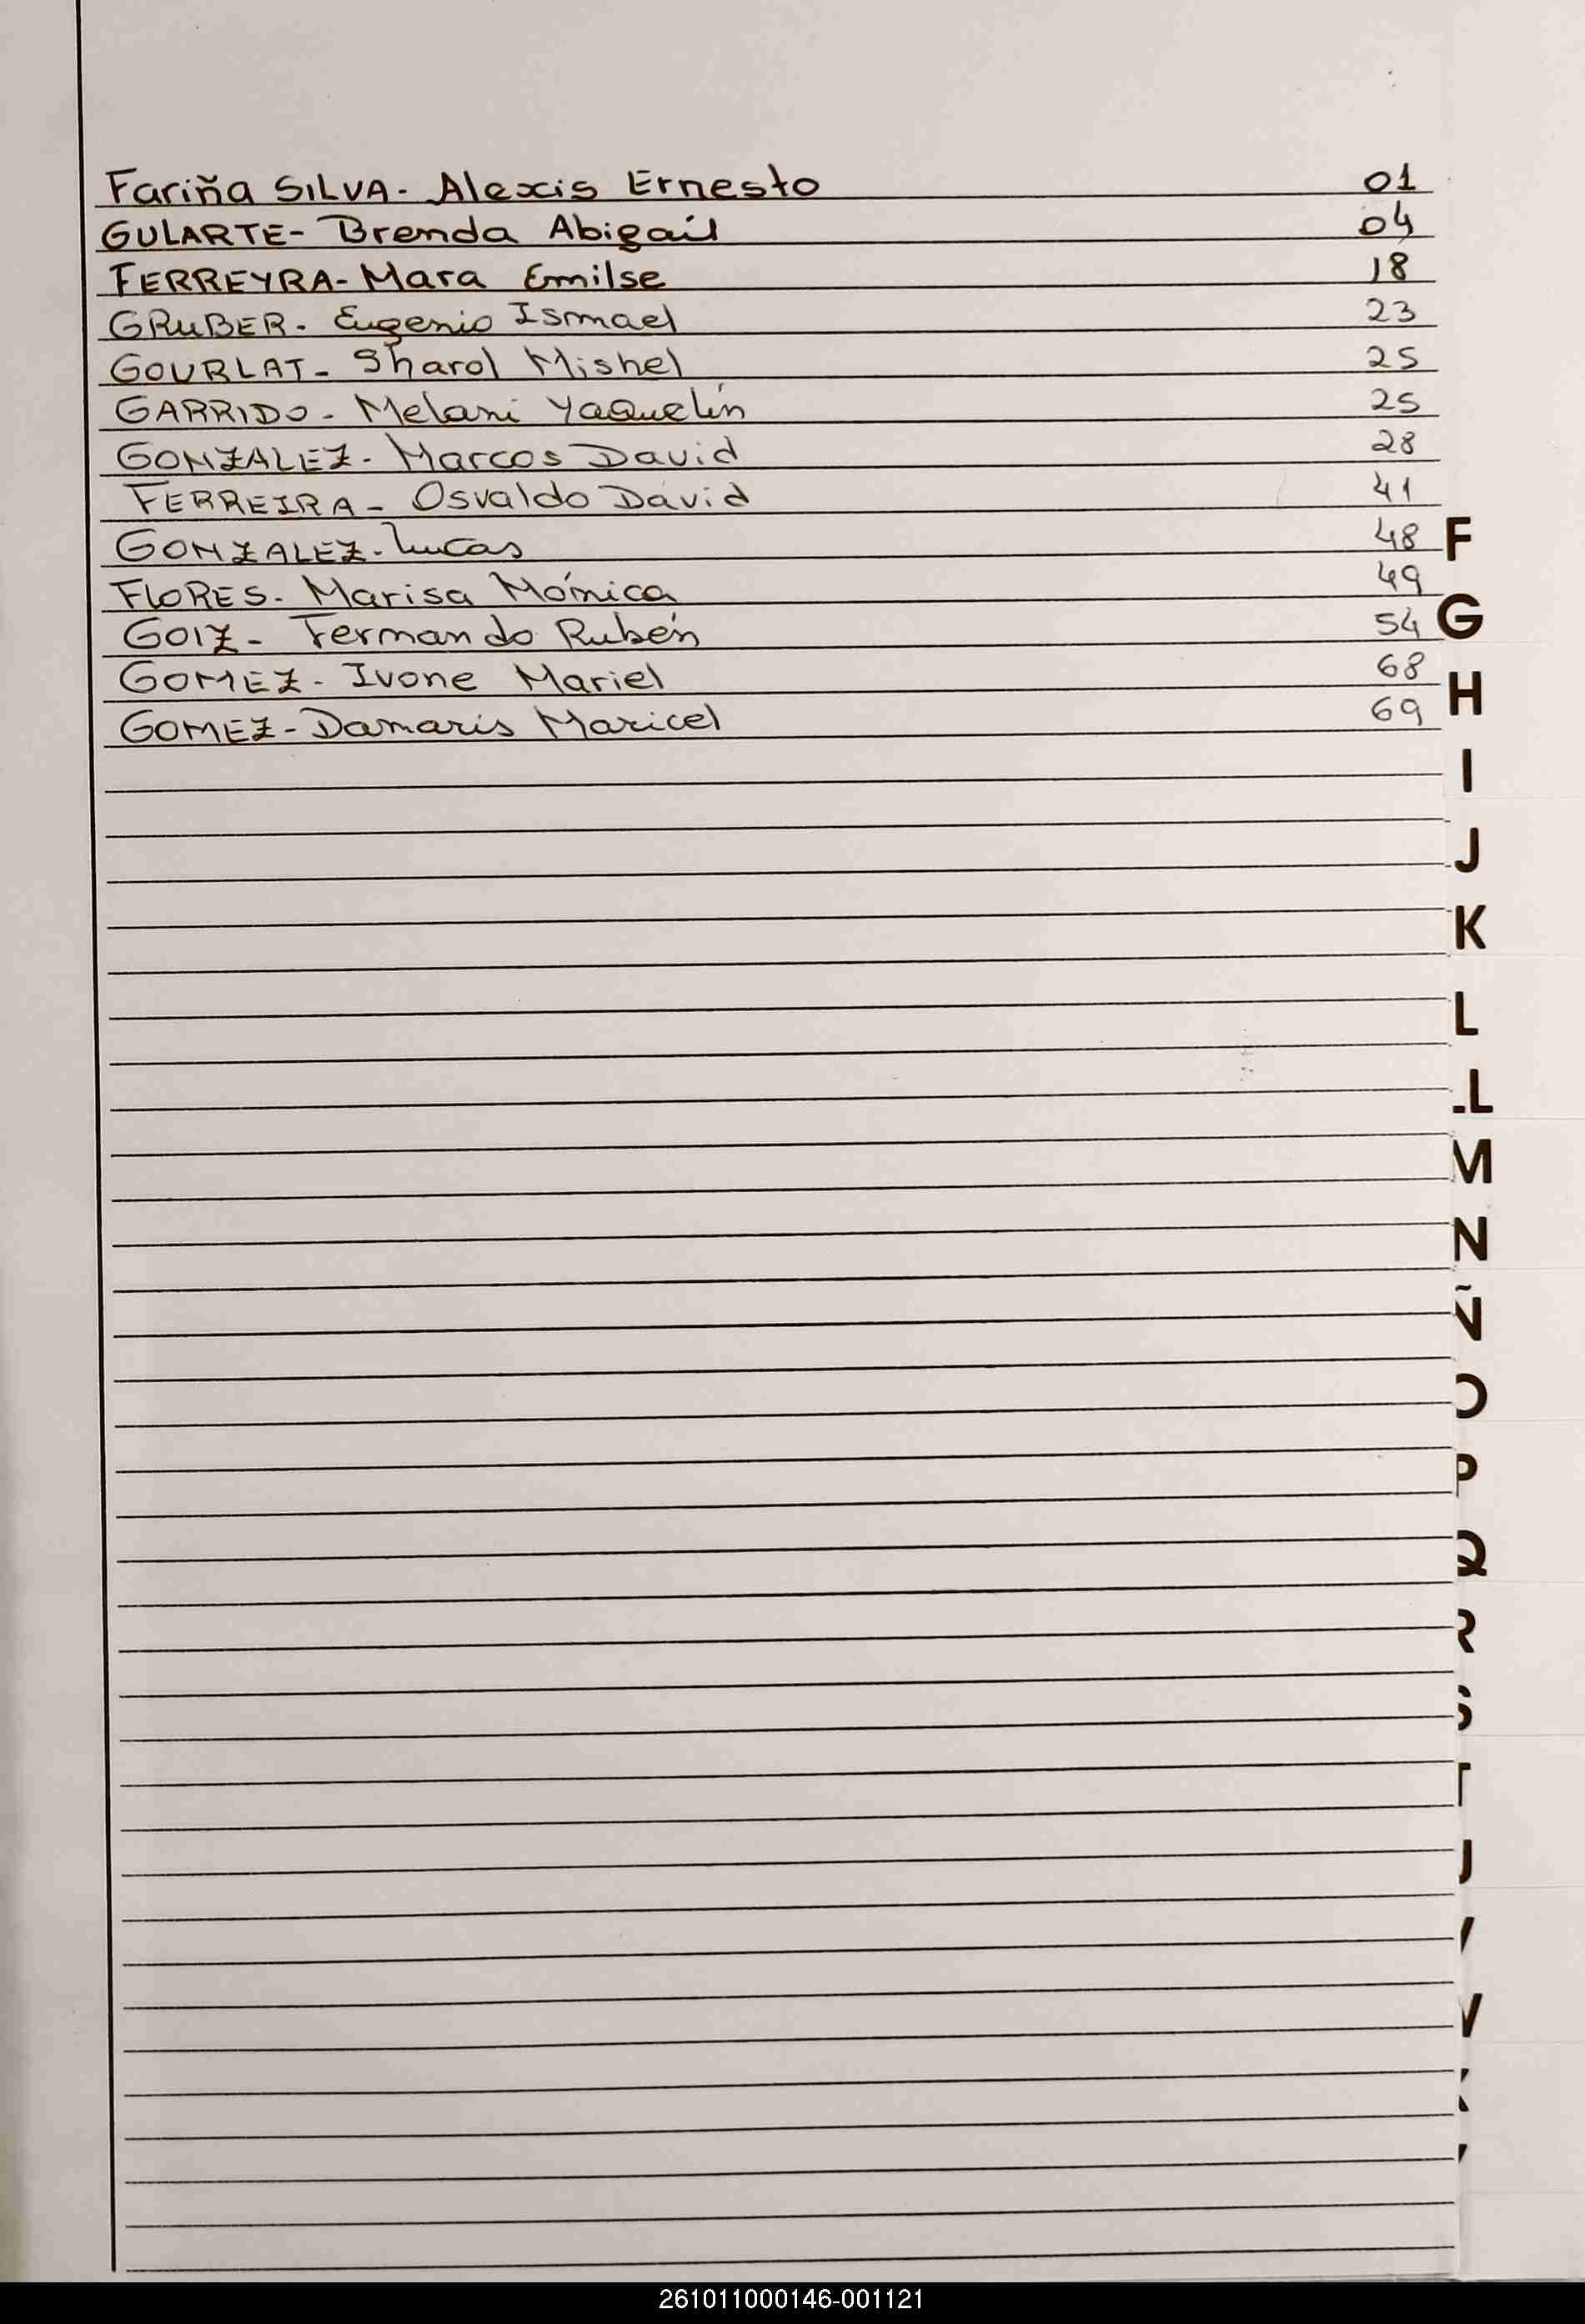 Fariña SILVA- Alexis Ernesto 01
GULARTE- Brenda Abigail 04
FERREYRA- Mara Emilse 18
GRUBER- Eugenio Ismael 23
GOURLAT- Sharol Mishel 25
GARRIDO- Melani Yaquelín 25
GONZALEZ- Marcos David 28
FERREIRA- Osvaldo David 41
GONZALEZ- Lucas 48
FLORES- Marisa Mónica 49
GOIZ- Fernando Rubén 54
GOMEZ- Ivone Mariel 68
GOMEZ- Damaris Maricel 69
F
G
H
I
J
K
L
LL
M
N
Ñ
O
P
Q
R
S
T
U
V
W
X
Y
261011000146-001121